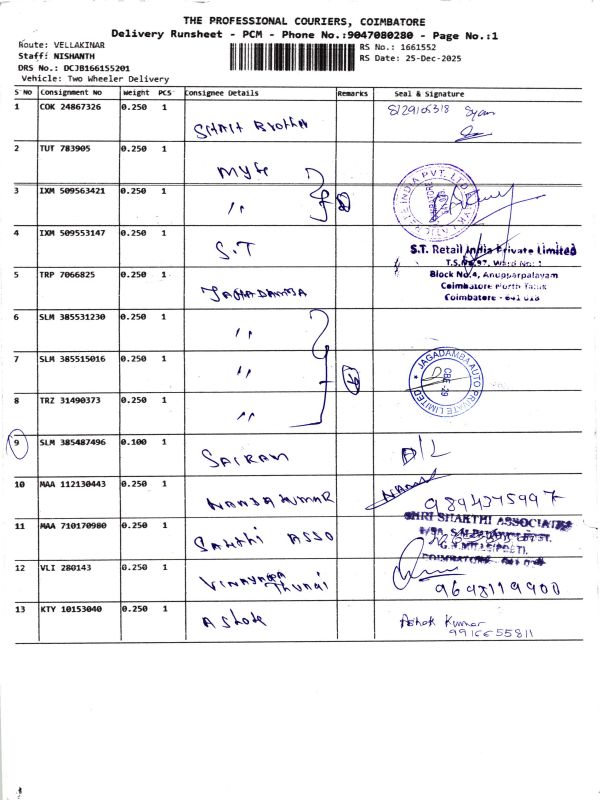 THE PROFESSIONAL COURIERS, COIMBATORE
Delivery Runsheet - PCM - Phone No.:9047080280 - Page No.:1
Route: VELLAKINAR
RS No.: 1661552
Staff: NISHANTH
RS Date: 25-Dec-2025
DRS No.: DCJB166155201
Vehicle: Two Wheeler Delivery
S NO Consignment No Weight PCS Consignee Details Remarks Seal & Signature
1 COK 24867326 0.250 1 8129105318 Syam
2 TUT 783905 0.250 1
3 IXM 509563421 0.250 1 "
4 IXM 509553147 0.250 1 S.T
S.T. Retail India Private Limited
T.S.No.97, Ward No: 1
Block No.4, Anupparpalayam
Coimbatore North Taluk
Coimbatore - 641 018
5 TRP 7066825 0.250 1 JAGADAMBA
6 SLM 385531230 0.250 1 "
7 SLM 385515016 0.250 1 "
JAGADAMBA AUTO PRIVATE LIMITED
CBE - 29
8 TRZ 31490373 0.250 1 "
9 SLM 385487496 0.100 1 SAIRAM D/L
10 MAA 112130443 0.250 1 NANDAKUMAR
9894375997
11 MAA 710170980 0.250 1 SAKTHI ASSO
SHRI SHAKTHI ASSOCIATES
COIMBATORE
12 VLI 280143 0.250 1 VINAYAGA
9698119900
13 KTY 10153040 0.250 1 Ashok Ashok Kumar
9916655811